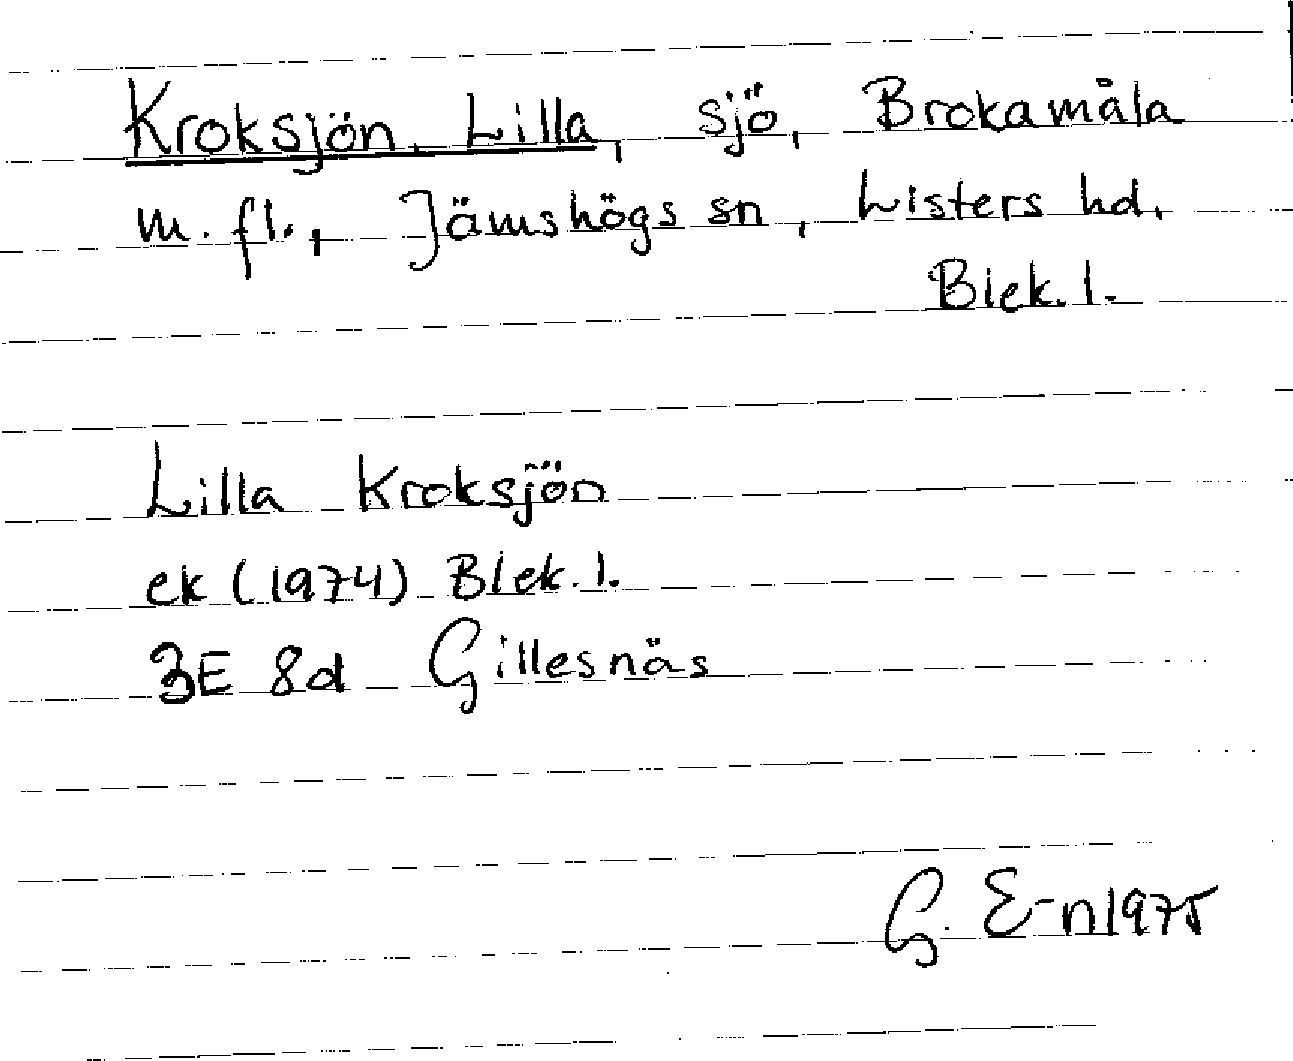 Kroksjön, Lilla, sjö, Brokamåla
m. fl., Jämshögs sn, Listers hd,
Blek. l.
Lilla Kroksjön
ek (1974) Blek. l.
3E 8d Gillesnäs
G. E-n 1975